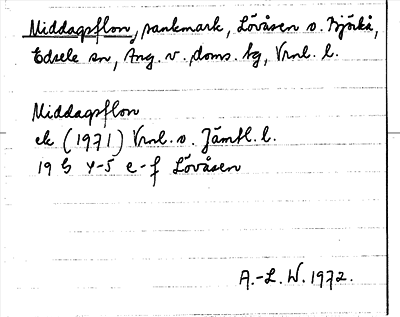 Middagsflon, sankmark, Lövåsen o. Björkå,
Edsele sn, Ång. v. doms. tg, Vrnl. l.
Middagsflon
ek (1971) Vrnl. o. Jämtl. l.
19 G 4-5 e-f Lövåsen
A.-L. W. 1972.